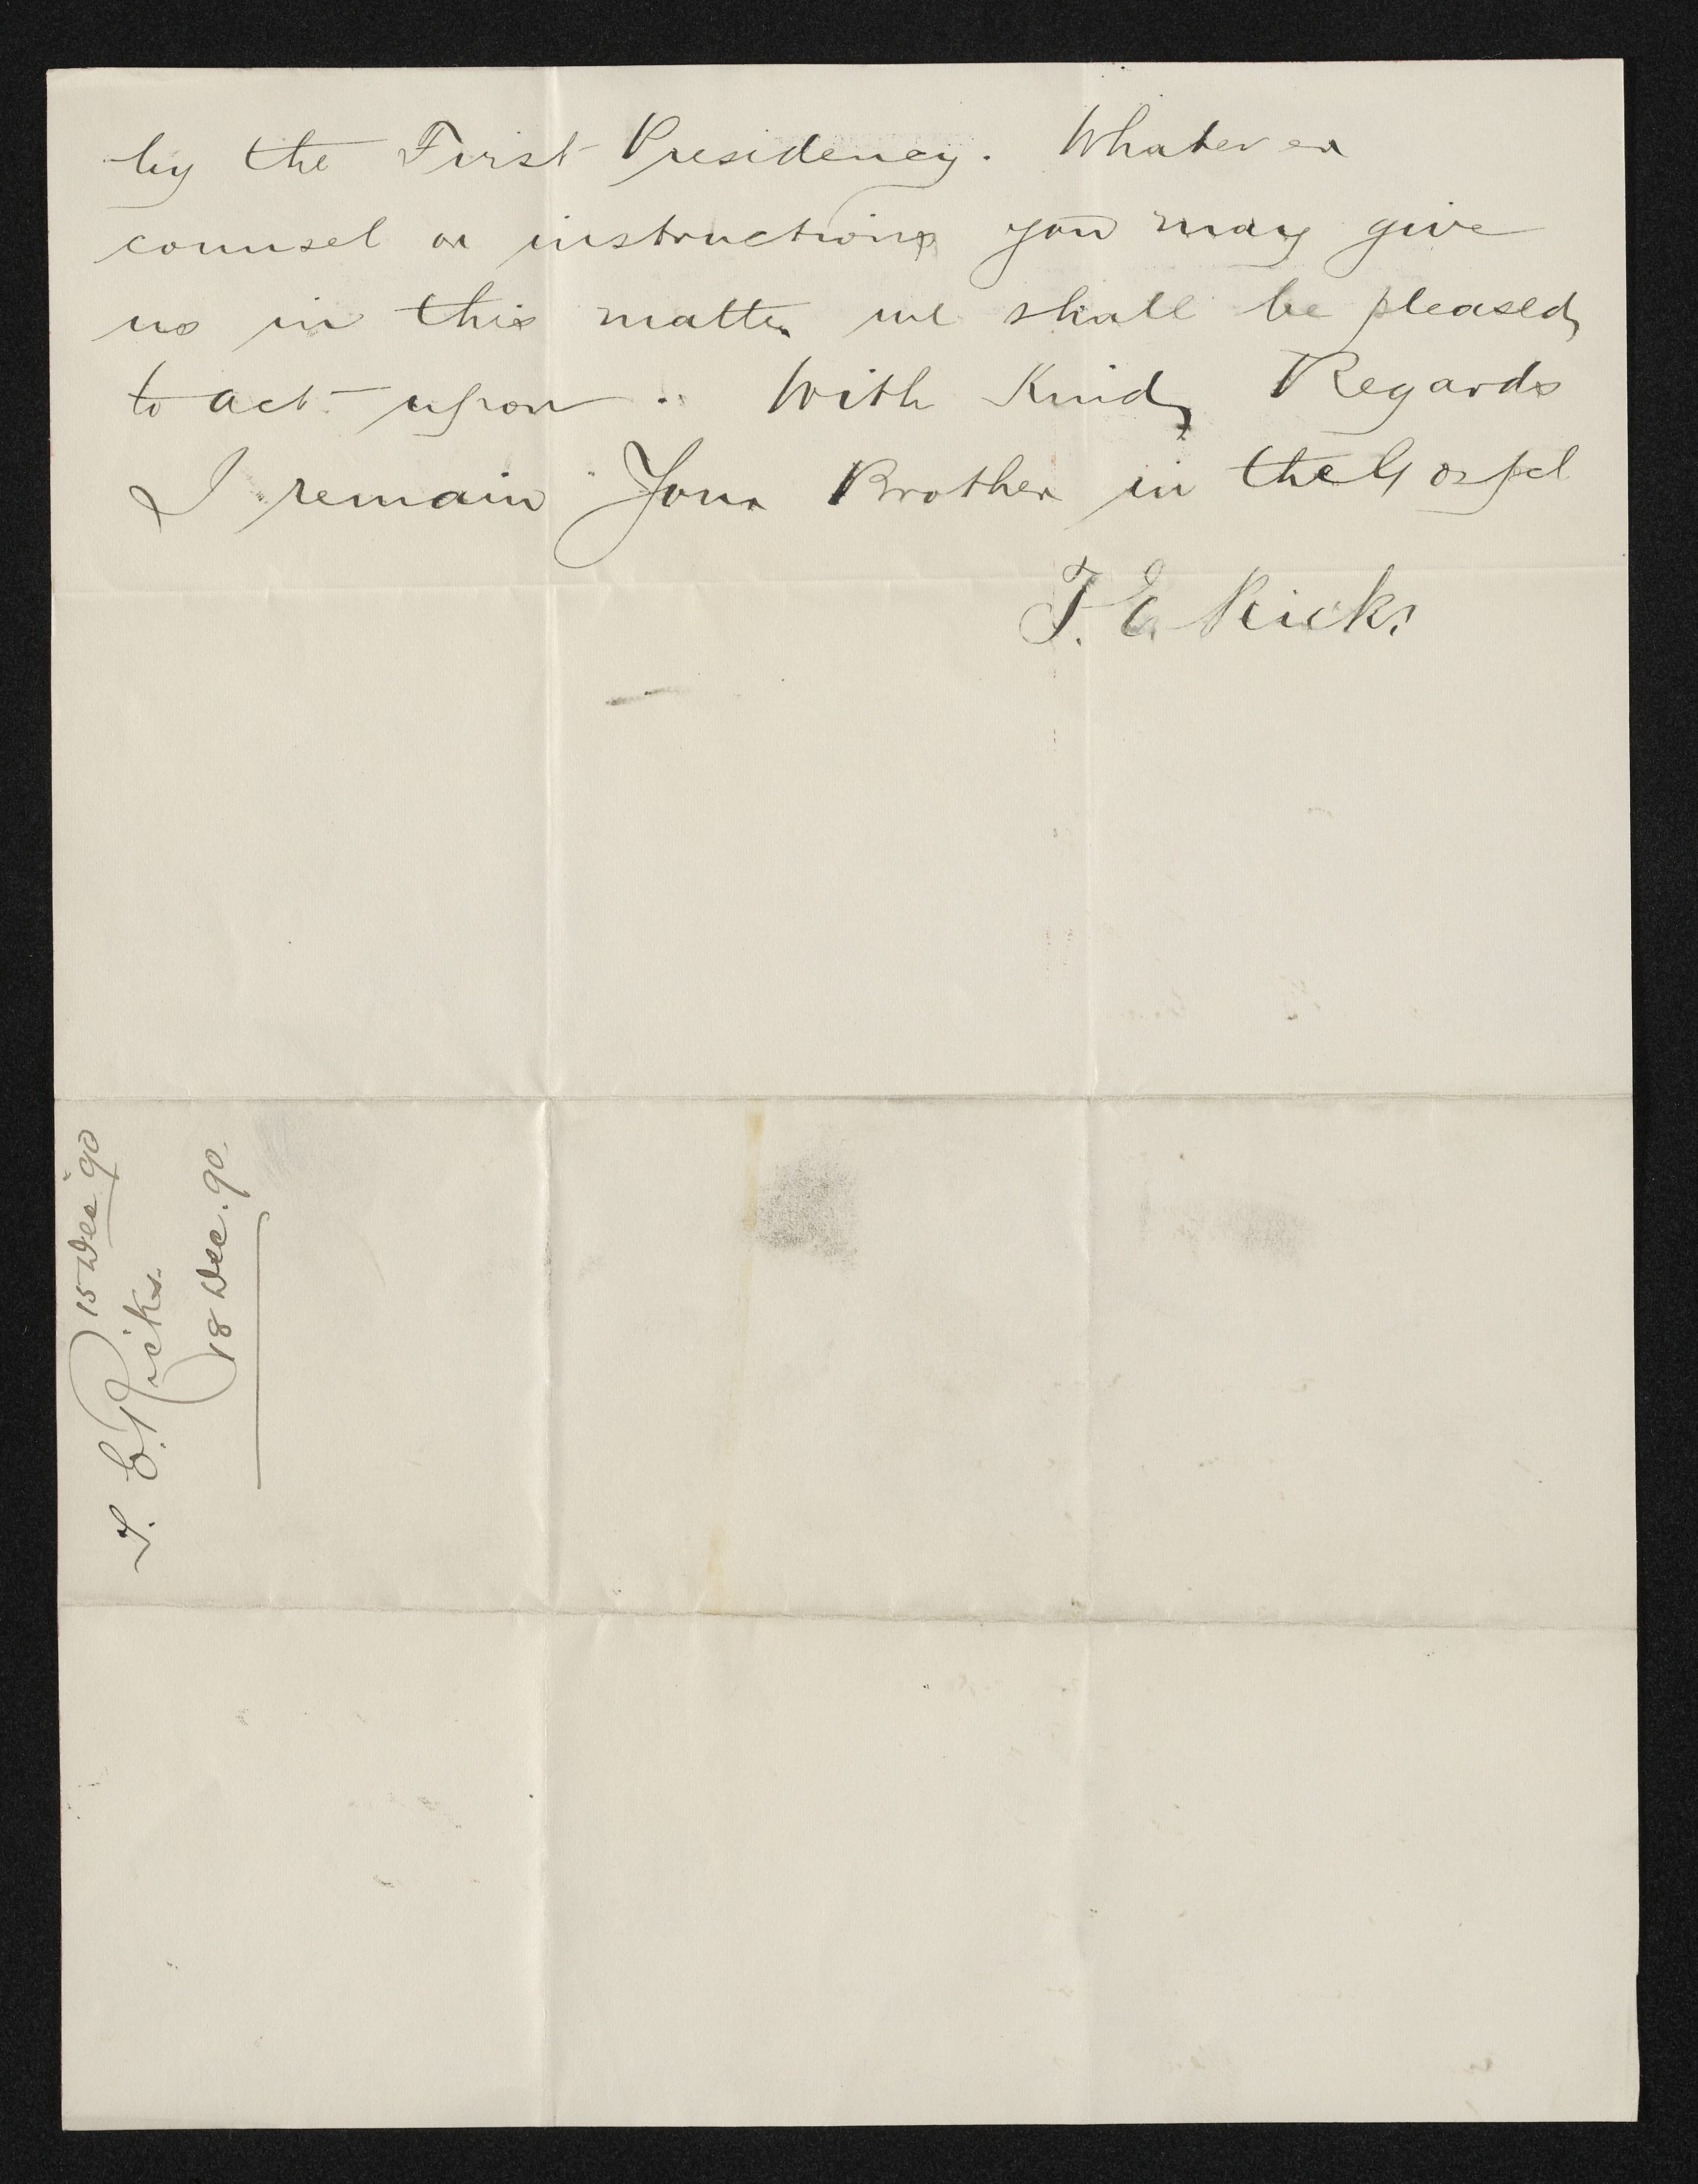 by the First Presidency. Whatever
counsel or instructions you may give
us in this matter we shall be pleased
to act upon. With Kind Regards
I remain Your Brother in the Gospel
T. E. Ricks
T. E. Ricks.
15 Dec. '90
18 Dec. 90.